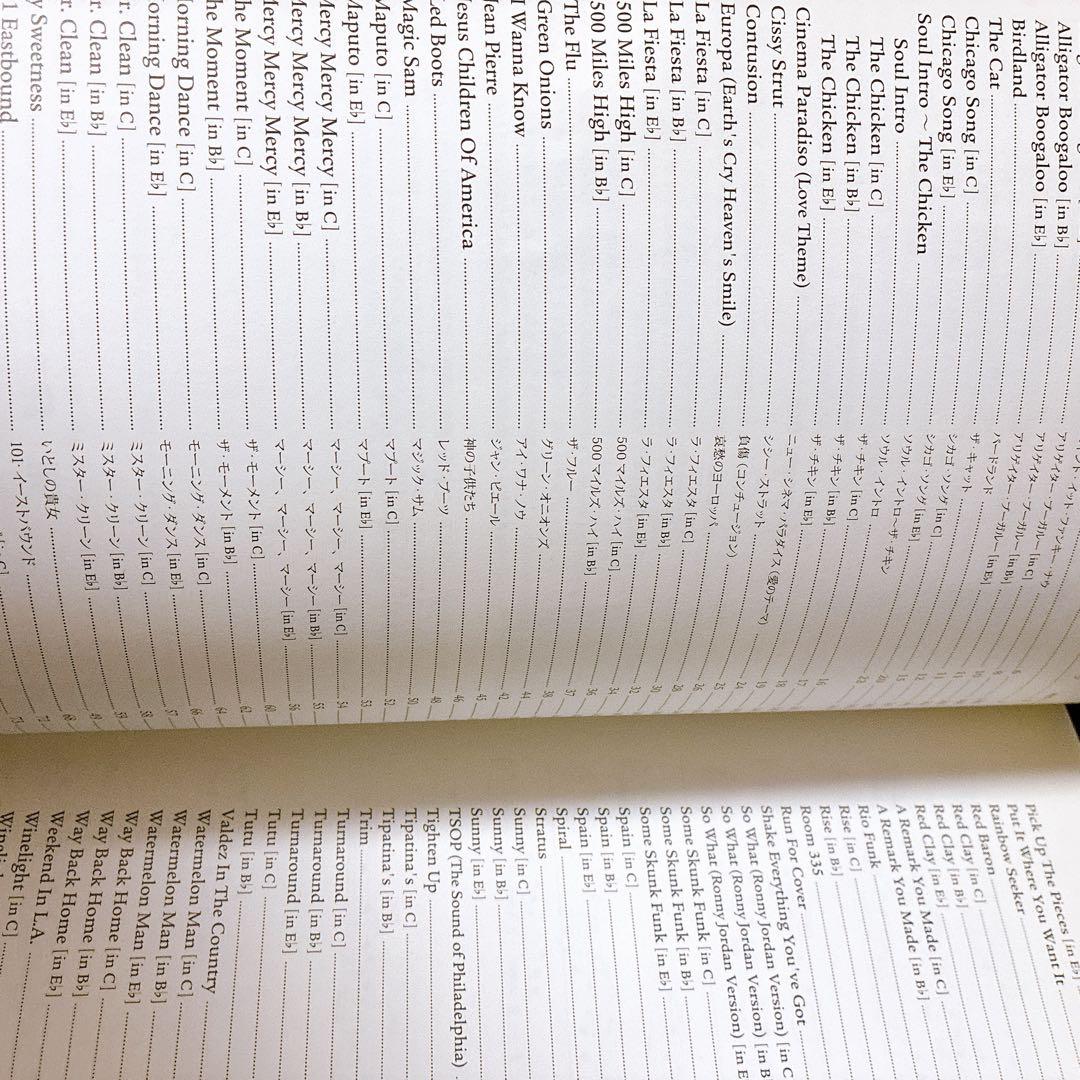 Alligator Boogaloo [in B♭] アリゲイター・ブーガルー [in B♭]
Alligator Boogaloo [in E♭] アリゲイター・ブーガルー [in E♭]
Birdland バードランド
The Cat ザ・キャット
Chicago Song [in C] シカゴ ソング [in C]
Chicago Song [in E♭] シカゴ ソング [in E♭]
Soul Intro ～ The Chicken ソウル・イントロ～ザ・チキン
Soul Intro ソウル・イントロ
The Chicken [in C] ザ チキン [in C]
The Chicken [in B♭] ザ チキン [in B♭]
The Chicken [in E♭] ザ チキン [in E♭]
Cinema Paradiso (Love Theme) ニュー・シネマ・パラダイス (愛のテーマ)
Cissy Strut シシー・ストラット
Contusion 負傷 (コンチュージョン)
Europa (Earth's Cry Heaven's Smile) 哀愁のヨーロッパ
La Fiesta [in C] ラ・フィエスタ [in C]
La Fiesta [in B♭] ラ・フィエスタ [in B♭]
La Fiesta [in E♭] ラ・フィエスタ [in E♭]
500 Miles High [in C] 500 マイルズ・ハイ [in C]
500 Miles High [in B♭] 500 マイルズ・ハイ [in B♭]
The Flu ザ・フルー
Green Onions グリーン・オニオンズ
I Wanna Know アイ・ワナ・ノウ
Jean Pierre ジャン・ピエール
Jesus Children Of America 神の子供たち
Led Boots レッド・ブーツ
Magic Sam マジック・サム
Maputo [in C] マプート [in C]
Maputo [in E♭] マプート [in E♭]
Mercy Mercy Mercy [in C] マーシー、マーシー、マーシー [in C]
Mercy Mercy Mercy [in B♭] マーシー、マーシー、マーシー [in B♭]
Mercy Mercy Mercy [in E♭] マーシー、マーシー、マーシー [in E♭]
he Moment [in C] ザ・モーメント [in C]
he Moment [in B♭] ザ・モーメント [in B♭]
orning Dance [in C] モーニング・ダンス [in C]
orning Dance [in E♭] モーニング・ダンス [in E♭]
r. Clean [in C] ミスター・クリーン [in C]
r. Clean [in B♭] ミスター・クリーン [in B♭]
r. Clean [in E♭] ミスター・クリーン [in E♭]
y Sweetness いとしの貴女
1 Eastbound 101・イーストバウンド
Pick Up The Pieces [in E♭]
Put It Where You Want It
Rainbow Seeker
Red Baron
Red Clay [in C]
Red Clay [in B♭]
Red Clay [in E♭]
A Remark You Made [in C]
A Remark You Made [in B♭]
Rio Funk
Rise [in C]
Rise [in B♭]
Room 335
Run For Cover
Shake Everything You've Got
So What (Ronny Jordan Version) [in C
So What (Ronny Jordan Version) [in B
So What (Ronny Jordan Version) [in E
Some Skunk Funk [in C]
Some Skunk Funk [in B♭]
Some Skunk Funk [in E♭]
Spain [in C]
Spain [in B♭]
Spain [in E♭]
Spiral
Stratus
Sunny [in C]
Sunny [in B♭]
Sunny [in E♭]
TSOP (The Sound of Philadelphia)
Tighten Up
Tipatina's [in C]
Tipatina's [in B♭]
Trim
Turnaround [in C]
Turnaround [in B♭]
Turnaround [in E♭]
Tutu [in C]
Tutu [in B♭]
Valdez In The Country
Watermelon Man [in C]
Watermelon Man [in B♭]
Watermelon Man [in E♭]
Way Back Home [in C]
Way Back Home [in B♭]
Way Back Home [in E♭]
Weekend In L.A.
Winelight [in C]